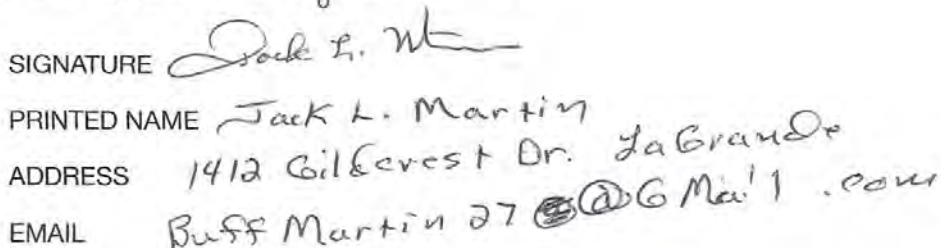 SIGNATURE Jack L. M
PRINTED NAME Jack L. Martin
ADDRESS 1412 Gilkcrest Dr. LaGrande
EMAIL Buff Martin 27 @ G Mail .com